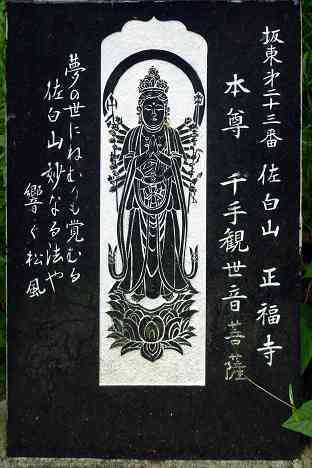 坂東第二十三番 佐白山 正福寺
本尊 千手観世音菩薩
夢の世にねむりも覚むる
佐白山妙なる法や
響く松風